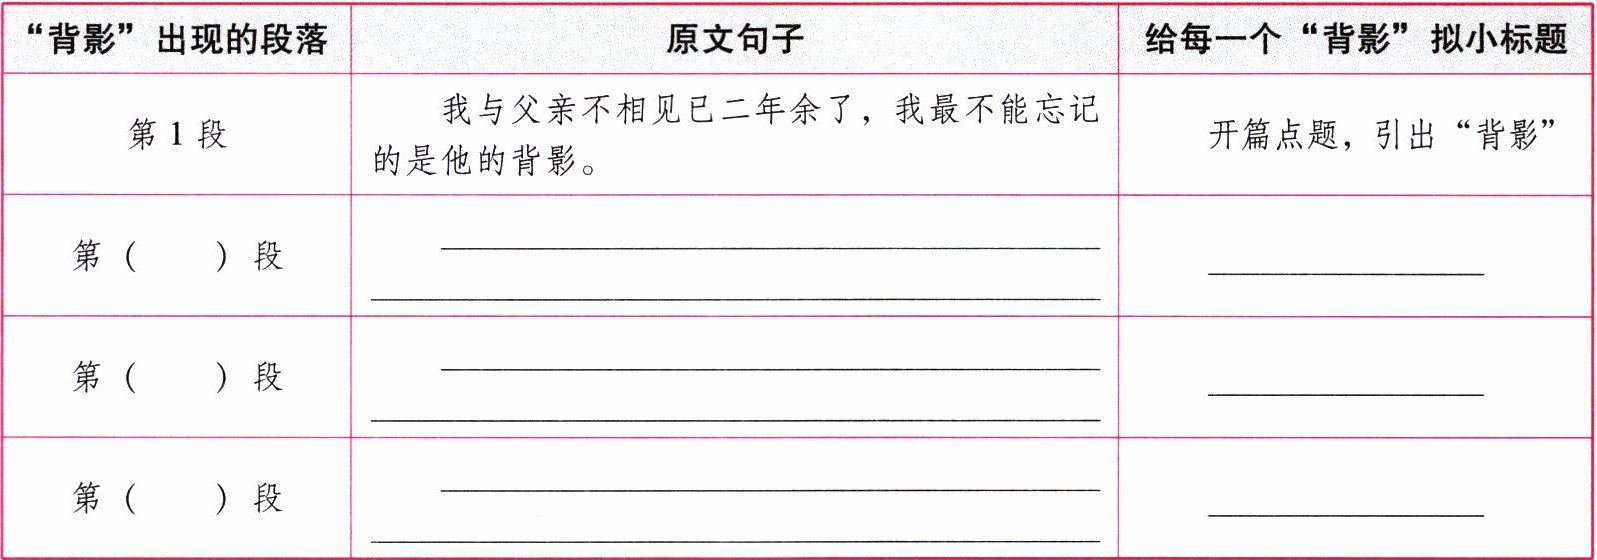 “背影”出现的段落 原文句子 给每一个“背影”拟小标题
第1段 我与父亲不相见已二年余了，我最不能忘记
的是他的背影。 开篇点题，引出“背影”
第（ ）段
第（ ）段
第（ ）段